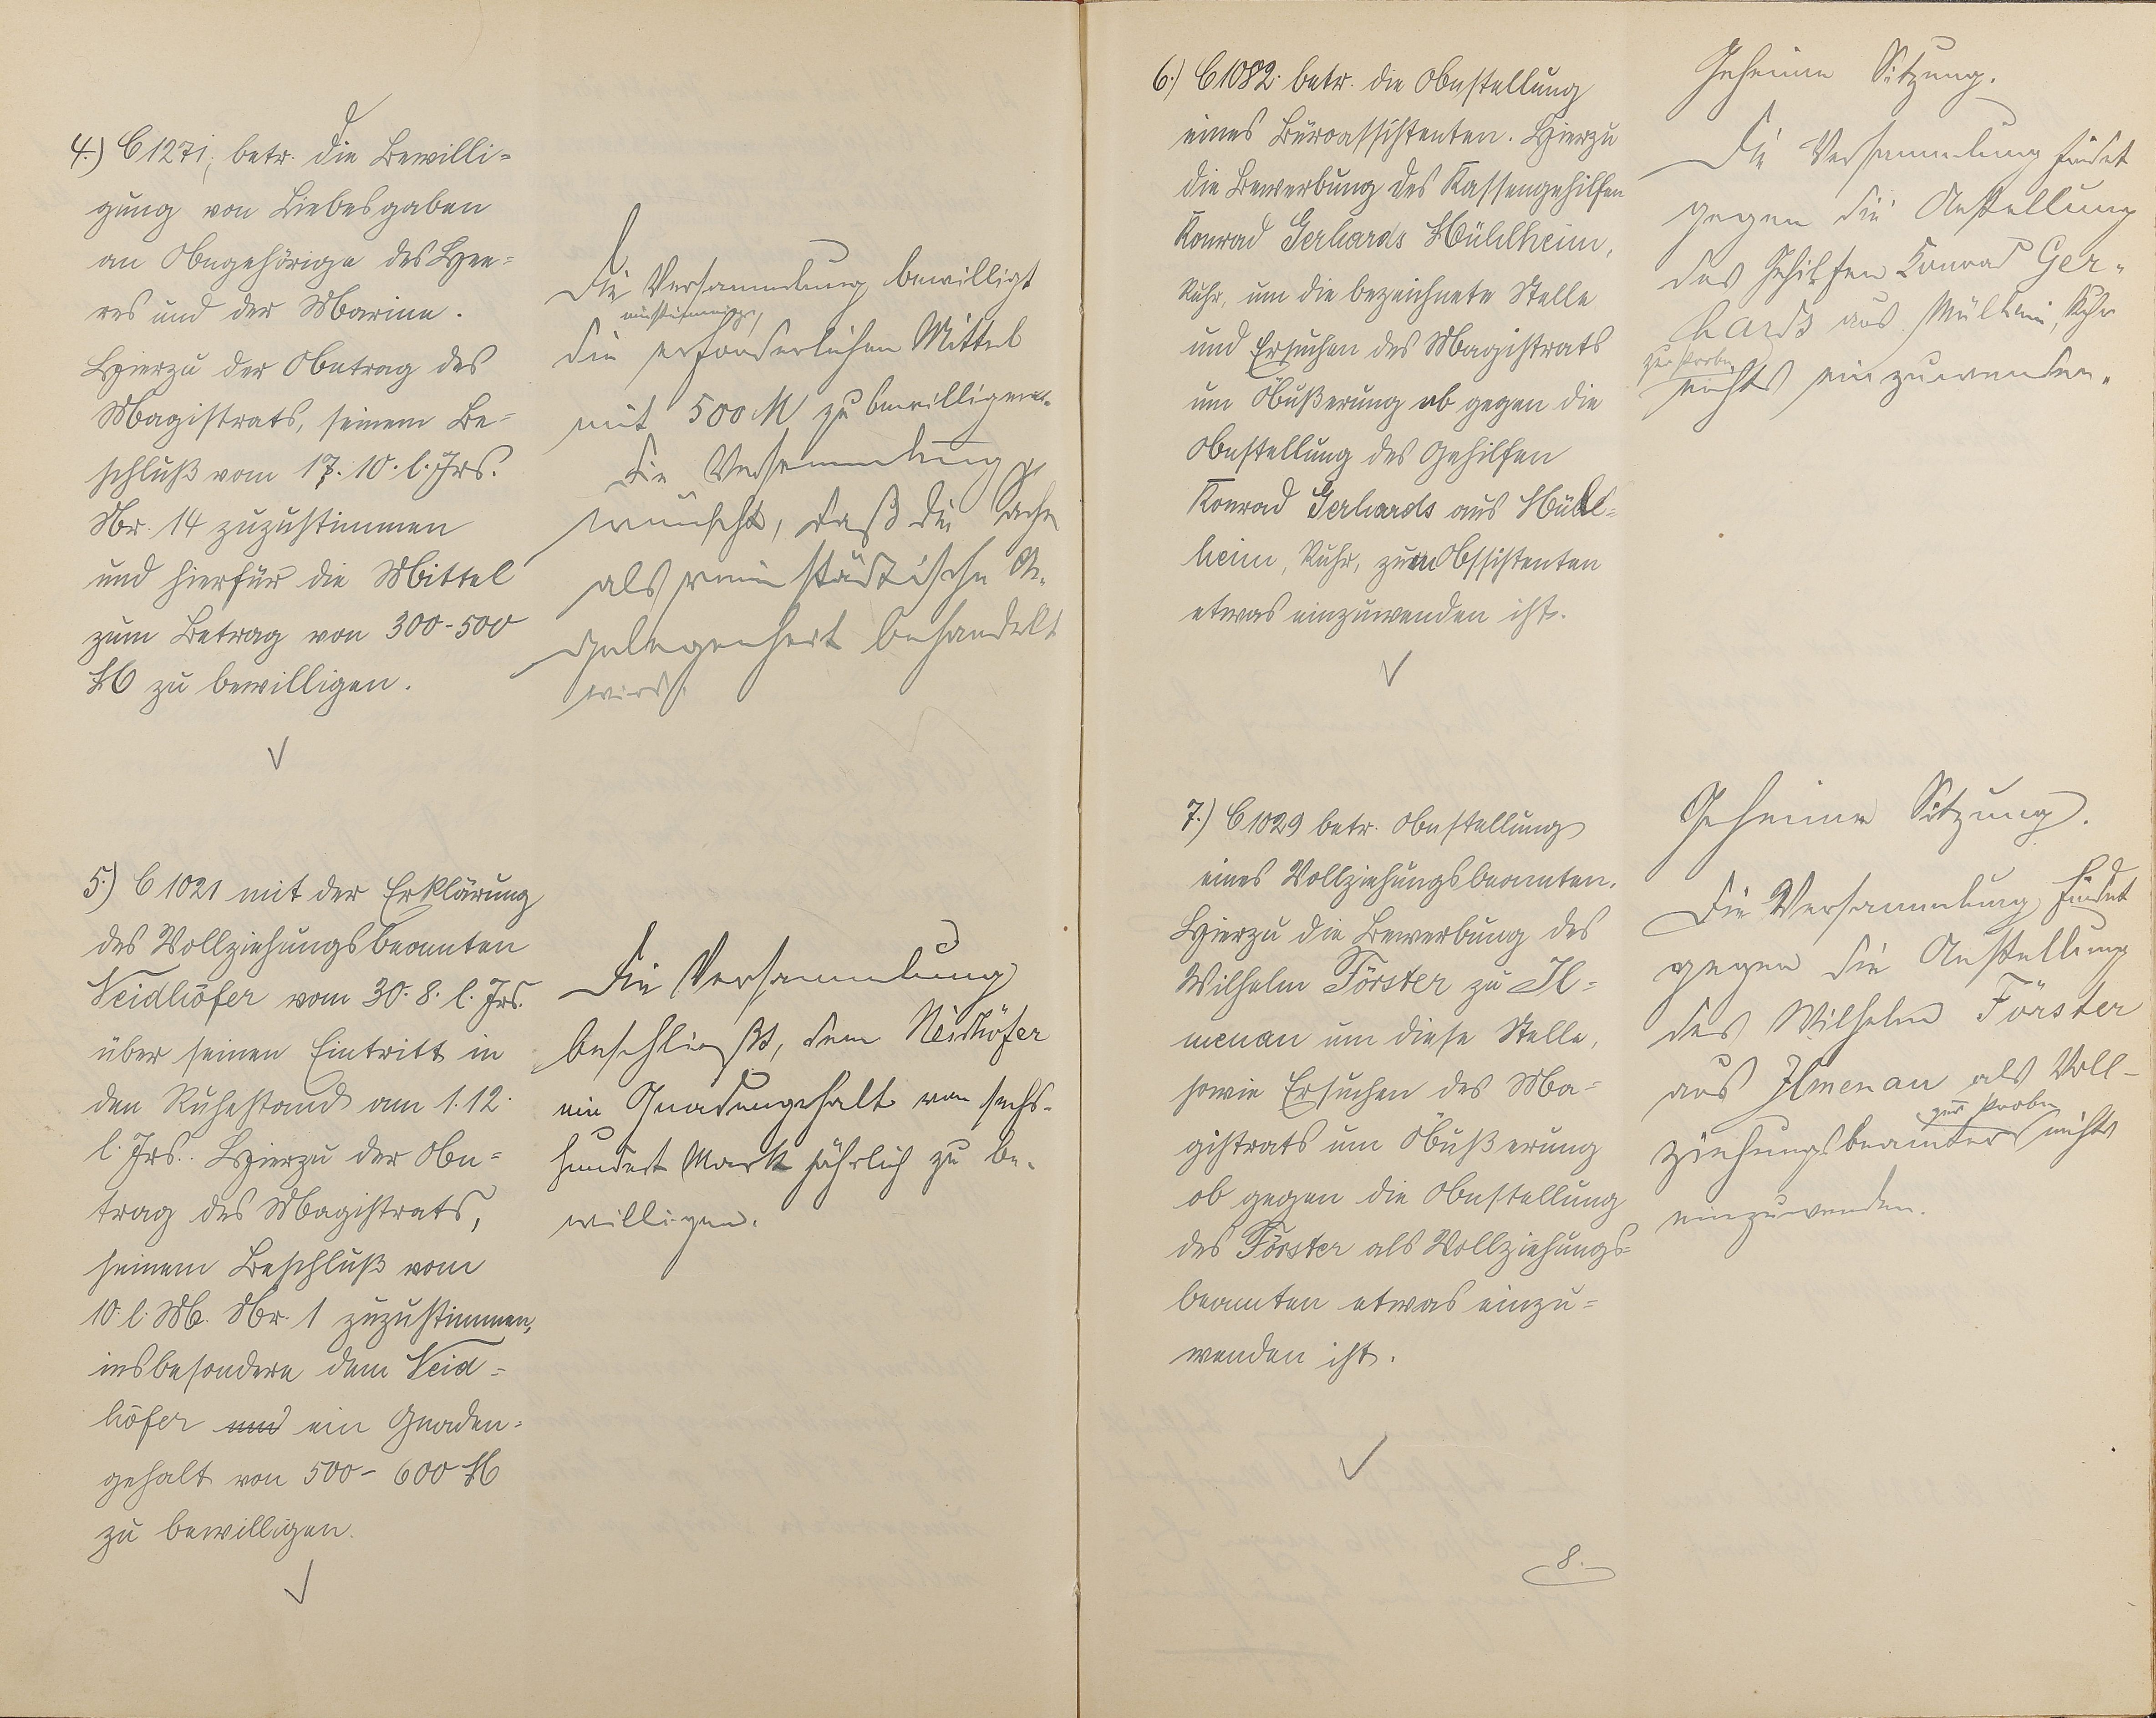 4.) C 1271, betr. die Bewilli=
gung von Liebesgaben
an Angehörige des Hee=
res und der Marine.
Hierzu der Antrag des
Magistrats, seinem Be=
schluß vom 17.10. l. Jrs.
Nr. 14 zuzustimmen
und hierfür die Mittel
zum Betrag von 300-500
M zu bewilligen.
Die Versammlung bewilligt
einstimmig,
die erforderlichen Mittel
mit 500 M zu bewilligen.
Die Versammlung
wünscht, daß die Sache
als rein städtische An-
gelegenheit behandelt
wird.
5.) C 1021 mit der Erklärung
des Vollziehungsbeamten
Neidhöfer vom 30.8. l. Jrs.
über seinen Eintritt in
den Ruhestand am 1.12.
l. Jrs.. Hierzu der An=
trag des Magistrats,
seinem Beschluß vom
10. l. M. Nr. 1 zuzustimmen,
insbesondere dem Neid=
höfer und ein Gnaden=
gehalt von 500 - 600 M
zu bewilligen.
Die Versammlung
beschließt, dem Neidhöfer
ein Gnadengehalt von sechs-
hundert Mark jährlich zu be-
willigen.
6.) C 1082 betr. die Anstellung
eines Büroassistenten. Hierzu
die Bewerbung des Kassengehilfen
Konrad Gerhards Mühlheim,
Ruhr, um die bezeichnete Stelle
und Ersuchen des Magistrats
um Äußerung ob gegen die
Anstellung des Gehilfen
Konrad Gerhards aus Mühl=
heim, Ruhr, zum Assistenten
etwas einzuwenden ist.
Geheime Sitzung.
Die Versammlung findet
gegen die Anstellung
des Gehilfen Konrad Ger-
hards aus Mülheim, Ruhr
zur Probe
nichts einzuwenden.
7.) C 1029 betr. Anstellung
eines Vollziehungsbeamten.
Hierzu die Bewerbung des
Wilhelm Förster zu Il=
menau um diese Stelle,
sowie Ersuchen des Ma=
gistrats um Äußerung
ob gegen die Anstellung
des Förster als Vollziehungs=
beamten etwas einzu=
wenden ist.
Geheime Sitzung.
Die Versammlung findet
gegen die Anstellung
des Wilhelm Förster
aus Ilmenau als Voll-
zur Probe
ziehungsbeamter nichts
einzuwenden.
8.